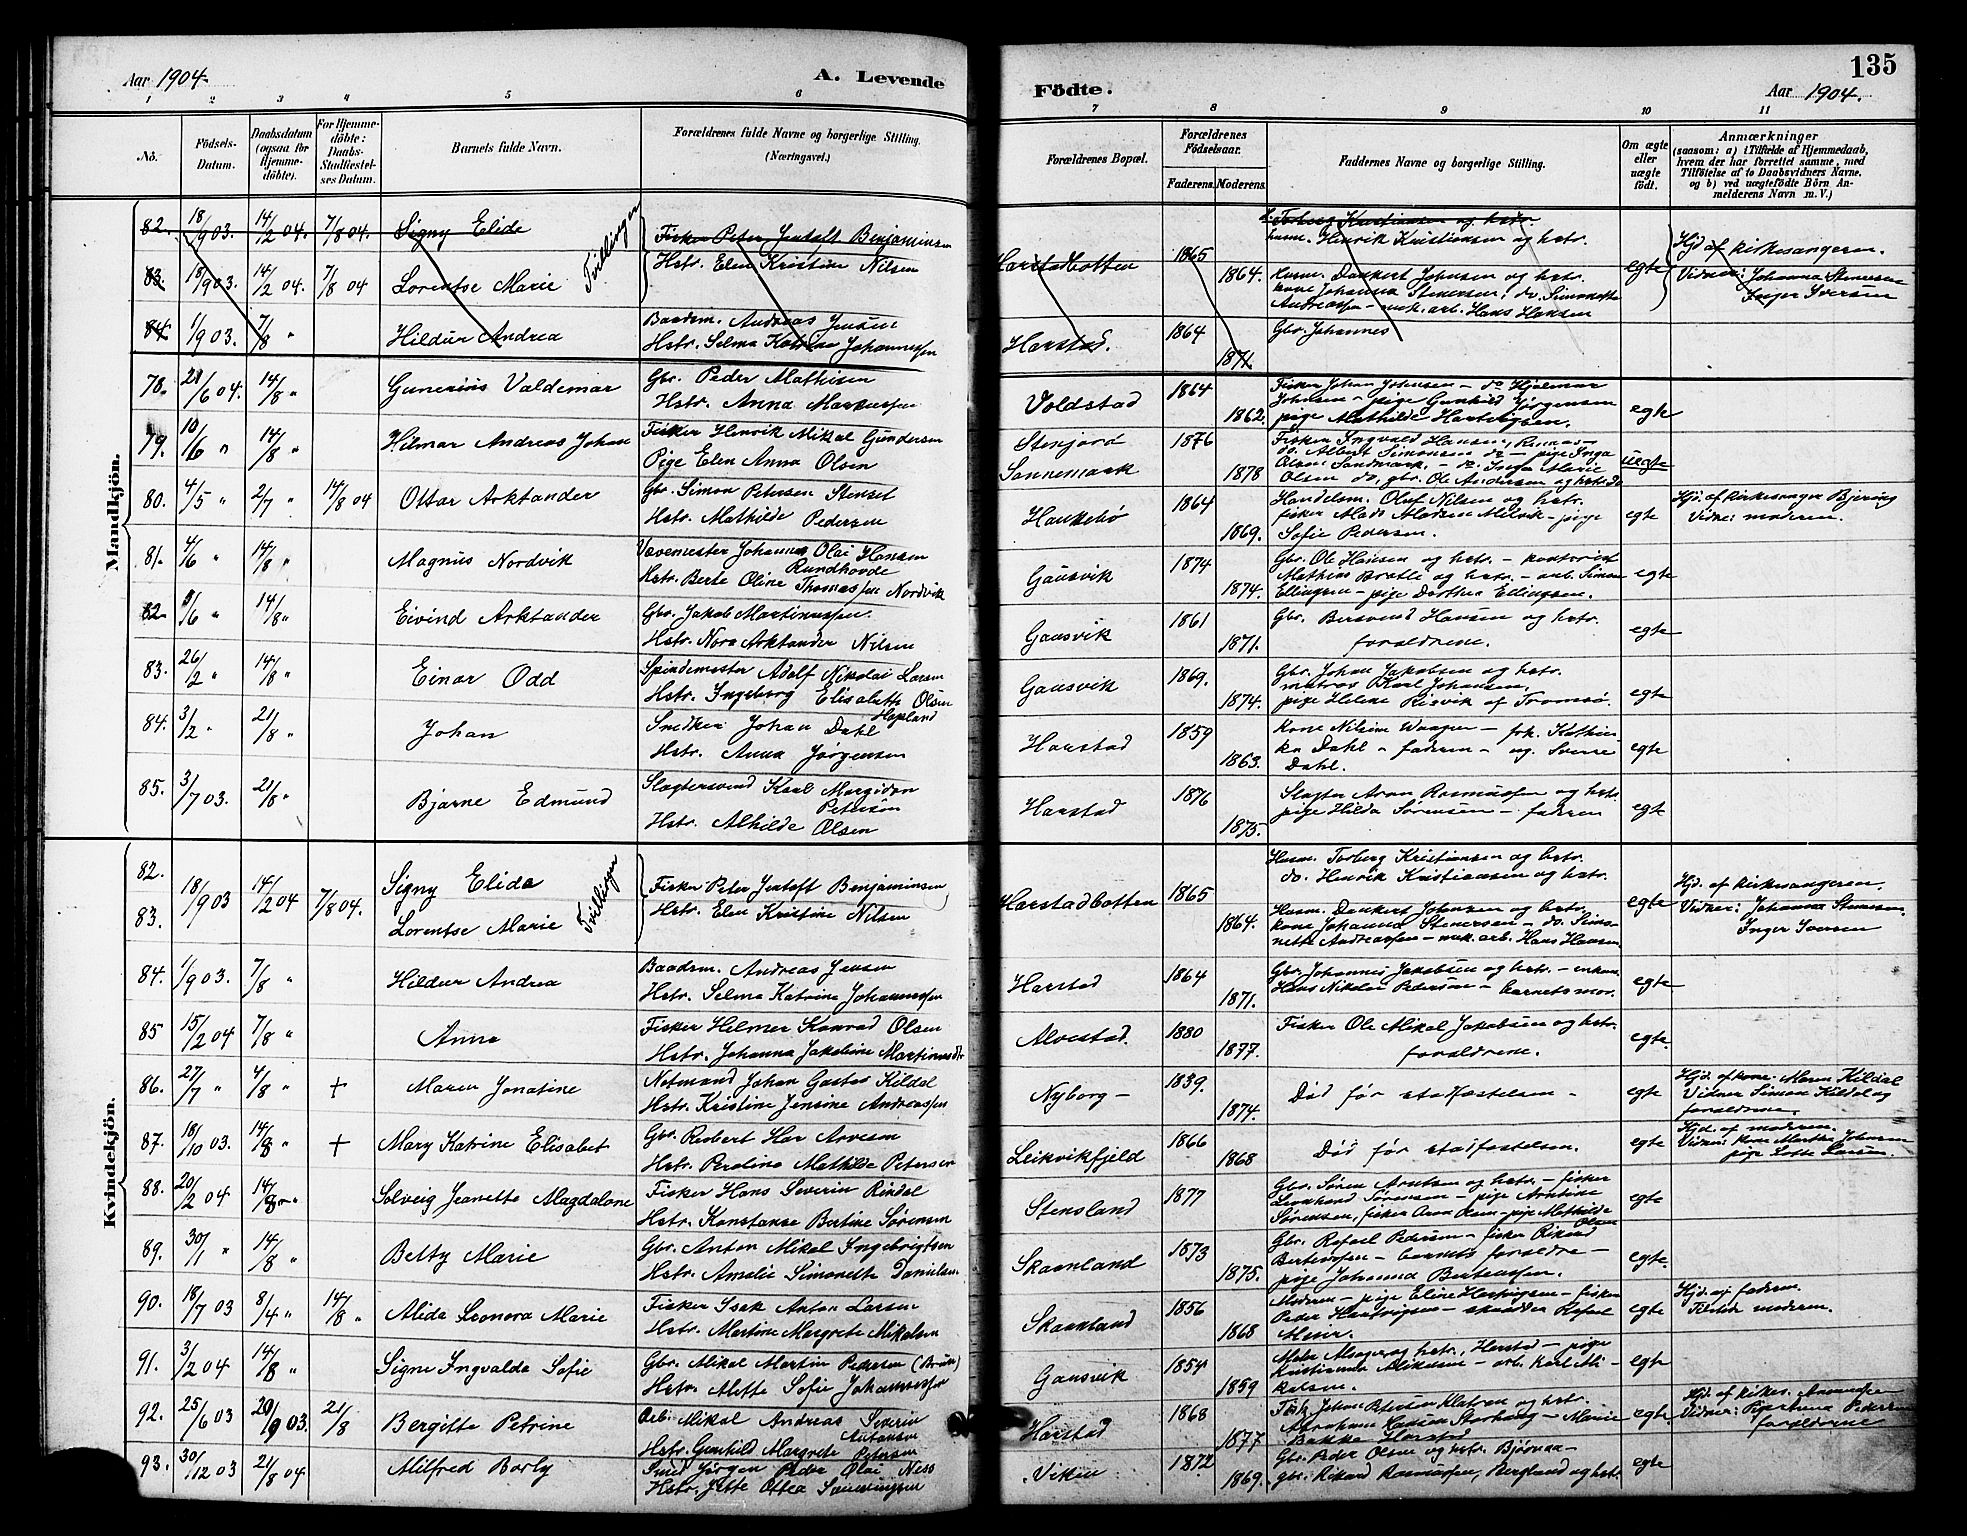 Aar 1904.
A. Levende
Födte.
135
Aar 1904.
1 2 3 4 5 6 7 8 9 10 11
No.
Födsels-
Datum.
Daabsdatum
(ogsaa for
Hjemme-
döbte).
For Hjemme-
döbte:
Daabs-
Stadfæstel-
ses Datum.
Barnets fulde Navn.
Forældrenes fulde Navne og borgerlige Stilling.
(Næringsvei.)
Forældrenes Bopæl.
Forældrenes
Födselsaar.
Faderens. Moderens.
Faddernes Navne og borgerlige Stilling.
Om ægte
eller
uægte
födt.
Anmærkninger
(saasom: a) i Tilfælde af Hjemmedaab,
hvem der har forrettet samme, med
Tilföielse af to Daabsvidners Navne,
og b) ved uægtefödte Börn An-
melderens Navn m. V.)
82. 18/9 03. 14/2 04. 7/8 04. Signy Elide
Tvillinger
Fisker Peter Jentoft Benjaminsen
Hstr. Elen Kristine Nilsen
Harstadbotten 1865 1864.
Torberg Kristiansen og hstr.
husm. Henrik Kristiansen og hstr.
Husm. Dankert Johnsen og hstr.
kone Johanna Stenersen, do. Simonette
Andreassen - arb. Hans Hansen
egte
Hjd. af kirkesangeren.
Vidner: Johanna Stenersen
Inger Iversen
83. 18/9 03. 14/2 04. 7/8 04 Lorentse Marie
84 1/9 03. 7/8 " Hildur Andrea
Baadsm. Andreas Jensen
Hstr. Selma Katrine Johannessen
Harstad. 1864 1871.
Gbr. Johannes
Mandkjön.
78. 21/6 04. 14/8 " Gunerius Valdemar
Gbr. Peder Mathisen
Hstr. Anna Markussen
Voldstad 1864 1862.
Fisker Johan Johnsen - do Hjalmar
Johnsen - pige Gunhild Jørgensen
pige Mathilde Hartvigsen.
egte
79. 10/6 " 14/8 " Hilmar Andreas Johan
Fisker Henrik Mikal Gundersen
Pige Elen Anna Olsen
Stenjord
Sannemark
1876 1878
Fisker Ingvald Hansen,
do. Albert Simonsen do - pige Inga
Olsen Sandmark. - do. Inga Marie
Olsen do, gbr. Ole Andersen og hstr. do
uegte
80. 4/5 " 2/7 " 14/8 04 Ottar Arktander
Gbr. Simon Petersen Stenset
Hstr. Mathilde Pedersen
Haukebø 1864 1869.
Handelsm. Oluf Nilsen og hstr.
fisker Mads Madsen Melvik - pige
Sofie Pedersen.
egte
Hjd. af kirkesanger Bjerving
Vidne: moderen.
81. 4/6 " 14/8 " Magnus Nordvik
Vævemester Johannes Olai Hansen
Rundhovde
Hstr. Berte Oline Thomassen Nordvik
Gausvik 1874 1874.
Gbr. Ole Hansen og hstr. - kontorist
Mathias Bratli og hstr. - arb. Simon
Ellingsen - pige Dorthea Ellingsen.
egte
82 9/6 " 14/8 " Eivind Arktander
Gbr. Jakob Martinussen.
Hstr. Nora Arktander Nilsen
Gausvik 1861 1871.
Gbr. Bersvend Hansen og hstr.
forældrene.
egte
83. 26/2 " 14/8 " Einar Odd
Spindemester Adolf Nikolai Larsen
Hstr. Ingeborg Elisabeth Olsen
Hopland
Gausvik 1869. 1874.
Gbr. Johan Jakobsen og hstr.
matros Karl Johansen.
pige Helene Risvik af Tromsø.
egte
84. 3/2 " 21/8 " Johan
Snedker Johan Dahl
Hstr. Anna Jørgensen
Harstad 1859 1863.
Kone Nilsine Waagen - frk. Kathin-
ka Dahl - faderen - ug. Sverre
Dahl.
egte
85. 3/7 03. 21/8 " Bjarne Edmund
Slagtersvend Karl Margidon
Petersen
Hstr. Alhilde Olsen
Harstad 1876 1875.
Slagter Aron Rasmussen og hstr.
pige Hilda Sørensen - faderen
egte
Kvindekjön.
82. 18/9 03 14/2 04 7/8 04. Signy Elida
83. Lorentse Marie
Tvillinger
Fisker Peter Jentoft Benjaminsen
Hstr. Elen Kristine Nilsen
Harstadbotten 1865 1864.
Husm. Torberg Kristiansen og hstr.
do. Henrik Kristiansen og hstr.
Husm. Dankert Johnsen og hstr.
kone Johanna Stenersen - do. Simo-
nette Andreassen - arb. Hans Hansen
egte
Hjd. af kirkesangeren.
Vidner: Johanna Stenersen.
Inger Iversen
84. 1/9 03. 7/8 " Hildur Andrea
Baadsm. Andreas Jensen
Hstr. Selma Katrine Johannessen
Harstad 1864 1871.
Gbr. Johannes Jakobsen og hstr. - enkem.
Hans Nikolai Pedersen - barnets mor.
egte
85 15/2 04 7/8 " Anna
Fisker Hilmer Konrad Olsen
Hstr. Johanna Jakobine Martinusdtr
Alvestad. 1880 1877.
Fisker Ole Mikal Jakobsen og hstr.
forældrene.
egte.
86. 27/7 " 4/8 " + Maren Jonatine
Notmand Johan Gustav Kildal
Hstr. Kristine Jensine Andreassen
Nyborg - 1839. 1874.
Død før stadfæstelsen -
egte
Hjd. af kone Maren Kildal
Vidner Simson Kildal og
forældrene.
87. 18/10 03. 14/8 " + Mary Katrine Elisabet
Gbr. Robert Har Arvesen
Hstr. Peroline Mathilde Petersen
Leikvikfjeld 1866 1868
Død før stadfæstelsen.
egte
Hjd. af moderen.
Vidner: kone Martha Johnsen
pige Lotte Larsen.
88. 20/2 04 14/8 " Solveig Jeanette Magdalone
Fisker Hans Severin Rindal
Hstr. Konstanse Bertine Sørensen
Stensland 1877
Gbr. Søren Arntsen og hstr. - fisker
Leonhard Sørensen - pige Arntine
Sørensen, fisker Aron Olsen - pige Mathilde
Olsen
egte
89. 30/1 " 14/8 " Betty Marie
Gbr. Anton Mikal Ingebrigtsen
Hstr. Amalie Simonette Danielsen
Skaanland 1873 1875.
Gbr. Rafael Pedersen - fisker Rikard
Berteussen - barnets forældre -
pige Johanna Berteussen.
egte.
90. 18/7 03 8/4 " 14/8 " Alida Leonora Marie
Fisker Isak Anton Larsen
Hstr. Martine Margrete Mikalsen
Skaanland 1856 1868
Moderen - pige Eline Hartvigsen - fisker
Peder Hartvigsen - skrædder Rafael
Meier.
egte
Hjd. af faderen.
Tilstede moderen.
91. 3/2 04 14/8 " Signe Ingvalda Sofie
Gbr. Mikal Martin Pedersen (Bruun)
Hstr. Mette Sofie Johannessen
Gausvik 1854 1859
og hstr., Harstad - pige
Kristianna Mikalsen - arb. Karl Mi-
kalsen.
egte
92. 25/6 03 20/9 03. 21/8 Bergitte Petrine
Arb. Mikal Andreas Severin
Antonsen
Hstr. Gunhild Margrete Petersen
Harstad 1868 1877
og hstr.
Abraham Hansen Storhaug - Marie
Bakke Harstad
egte
Hjd. af kirkes.
Vidner: Pedersen
forældrene
93. 30/12 03 21/8 04 Milfred Borly
Smed Jørgen Peder Olai Ness
Hstr. Jette Ottea
Viken 1872 1869.
Gbr. Peder Olsen og hstr. Bjørnaa -
gbr. Rikard Rasmussen, Bergland og hstr.
egte